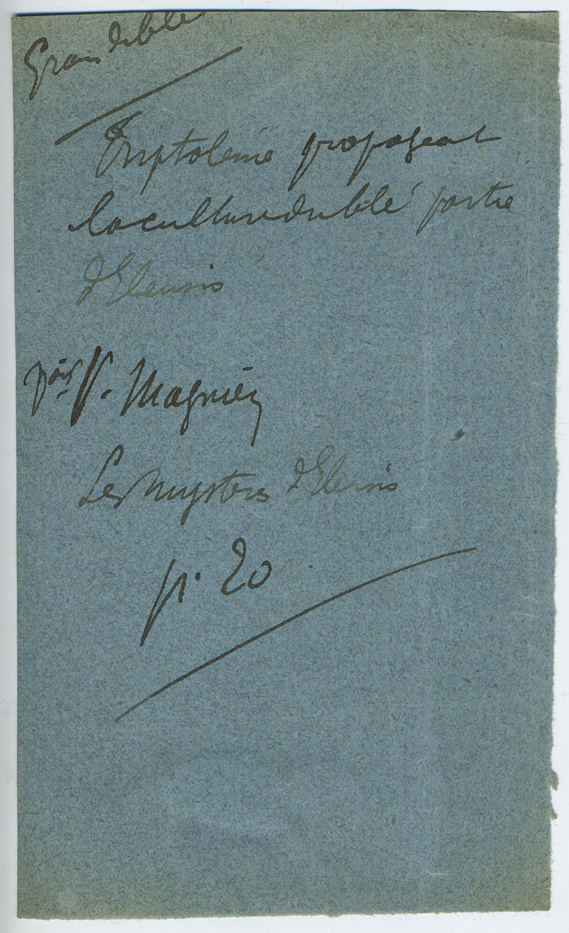 Grain de blé
Triptolème propageant
la culture du blé partie
d'Eleusis
par V. Magnien
Les Mystères d'Eleusis
p. 20